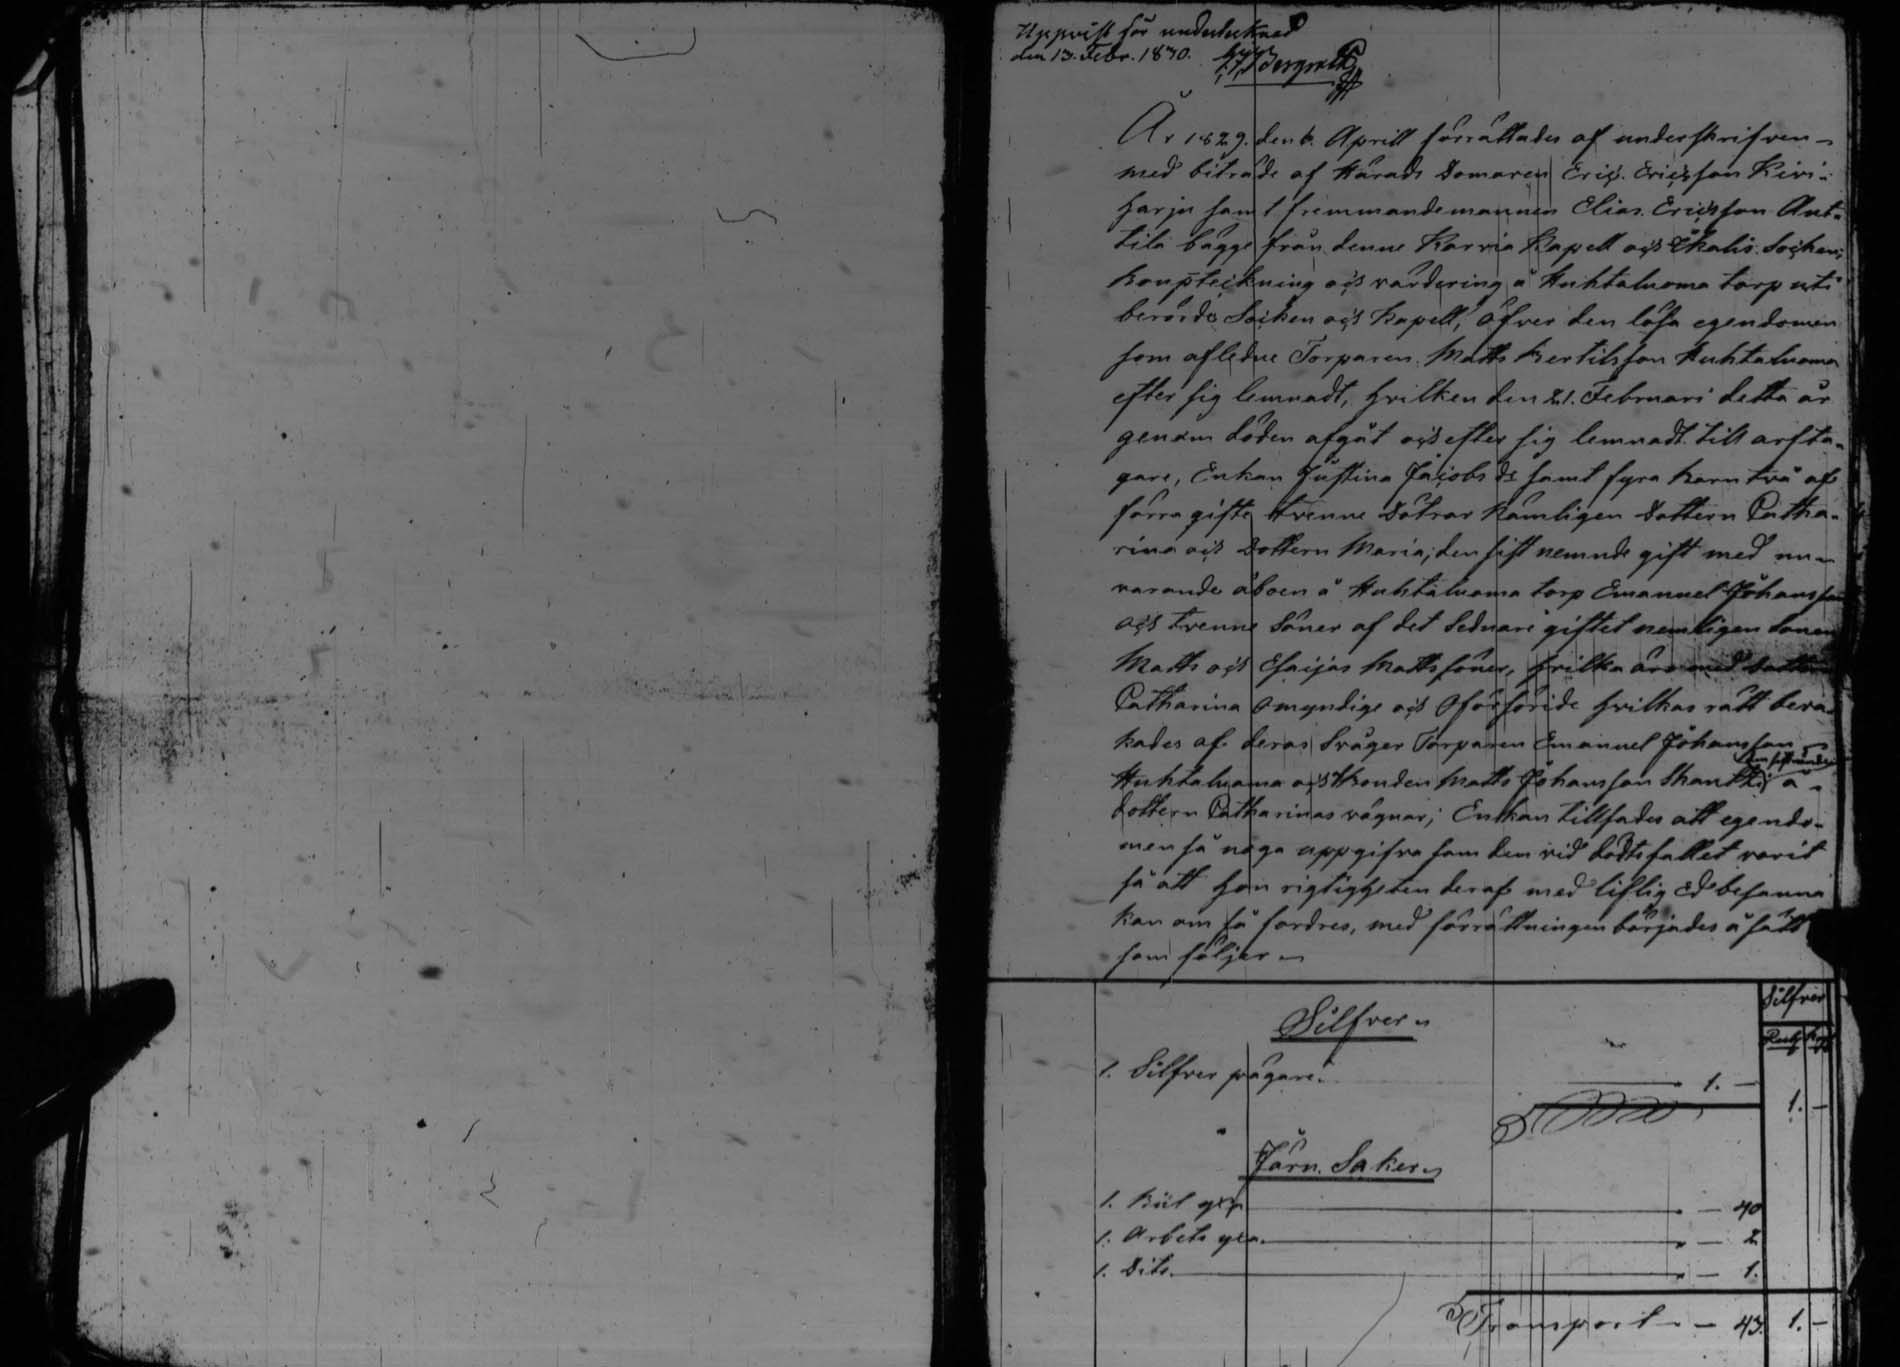 Uppvist för undertecknad
den 13. Febr. 1830.
År 1829. den 6. Aprill förrättades af underskrifven
med biträde af Härads Domaren Eric Ericsson Kivi-
harju samt fremmandemannen Elias Ericsson Ant-
tila bägge från denne Karvia Kapell och Ikalis Sochen,
boupteckning och värdering å Huhtaluoma torp uti
berörde Socken och Kapell, öfver den lösa egendomen
som afledne Torparen Matts Bertilsson Huhtaluoma
efter sig lemnadt, hvilken den 21. Februari detta år
genom döden afgåt och efter sig lemnadt till arfta-
gare, Enkan Justina Jacobs dr samt fyra barn två af
förra gifte tvenne Dötrar Nämligen Dottern Catha-
rina och Dottern Maria, den sist nemnde gift med nu-
varande åboen å Huhtaluoma torp Emanuel Johansson
och tvenne Söner af det Sednare giftet nemligen Sonen
Matts och Esaijas Mattssöner, hvilka äro med Dottern
Catharina omyndige och Oförsörjde hvilkas rätt beva-
kades af deras Svåger Torparen Emanuel Johansson
Huhtaluoma och Bonden Matts Johansson Skantti å
dottern Catharinas vägnar; Enkan tillsades att egendo-
men så noga uppgifva som den vid dödsfallet varit
så att hon rigtigheten deraf med liflig Ed besanna
kan om så fordres, med förrättningen börjades å sätt
som följer
Silfver
Silfver
Rub. Kop.
1. Silfver bägare. 1. —
1. —
Järn Saker
1. Bil yxa — 40
1. Arbets yxa — 2
1. Dito — 1.
Transport — 43. 1. —